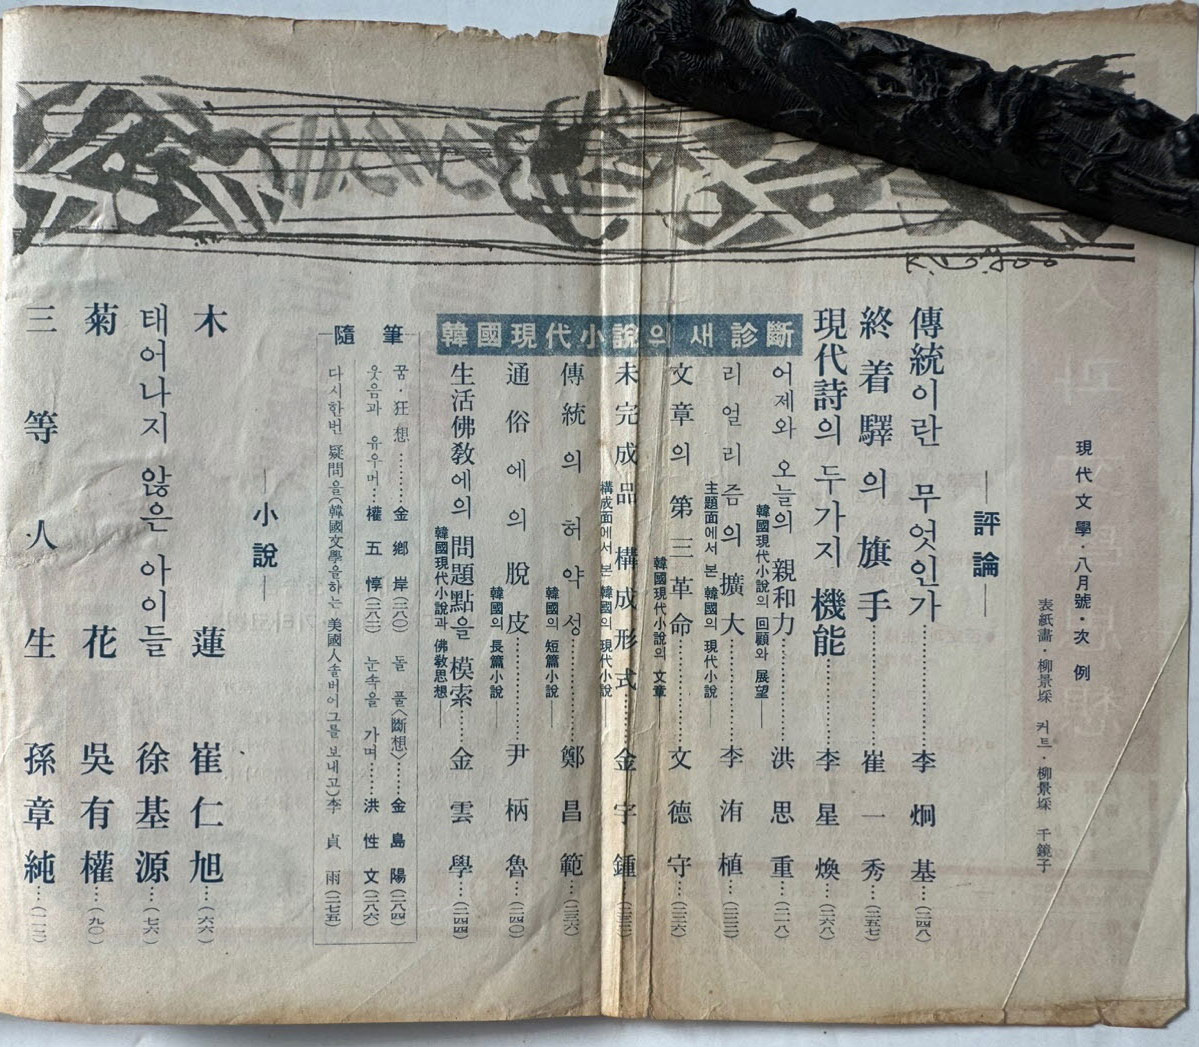 現代文學・八月號・次例
表紙畵・柳景埰 커트・柳景埰 千鏡子
K.D.Yoo
―評論―
傳統이란 무엇인가………李炯基…(二四八)
終着驛의 旗手………崔一秀…(二五七)
現代詩의 두가지 機能………李星煥…(二六八)
韓國現代小說의 새 診斷
어제와 오늘의 親和力………洪思重…(二一八)
韓國現代小說의 回顧와 展望―
리얼리즘의 擴大………李洧植…(二二二)
主題面에서 본 韓國의 現代小說―
文章의 第三革命………文德守…(二二六)
韓國現代小說의 文章―
未完成品 構成形式………金宇鍾…(二三二)
構成面에서 본 韓國의 現代小說―
傳統의 허약성………鄭昌範…(二三六)
韓國의 短篇小說―
通俗에의 脫皮………尹柄魯…(二四〇)
韓國의 長篇小說―
生活佛敎에의 問題點을 模索………金雲學…(二四四)
韓國現代小說과 佛敎思想―
隨筆
꿈・狂想………金鄕岸(二八〇)
돌 풀〈斷想〉………金島陽(二八四)
웃음과 유우머…權五惇(二八二)
눈속을 가며……洪性文(二八六)
다시한번 疑問을(韓國文學을하는 美國人솔버어그를 보내고)李貞雨(二七五)
―小說―
木蓮 崔仁旭…(六六)
태어나지 않은 아이들 徐基源…(七六)
菊花 吳有權…(九〇)
三等人生 孫章純…(一一二)